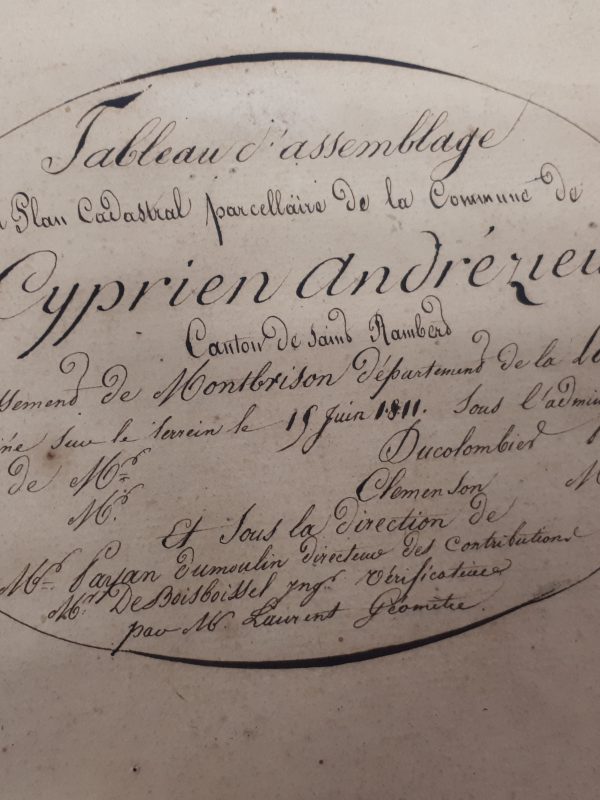 Tableau d'assemblage
Plan Cadastral parcellaire de la Commune de
Cyprien Andrézieu
Canton de saint Rambert
ssement de Montbrison département de la Lo
née sur le terrein le 15 Juin 1811. Sous l'admin
de Mr. Ducolombier
Mr. Clemenson M
Et Sous la direction de
Mr. Payan Dumoulin directeur des Contributions
Mr. DeBoisboissel yngr. Vérificateur
par Mr. Laurent Géomètre.